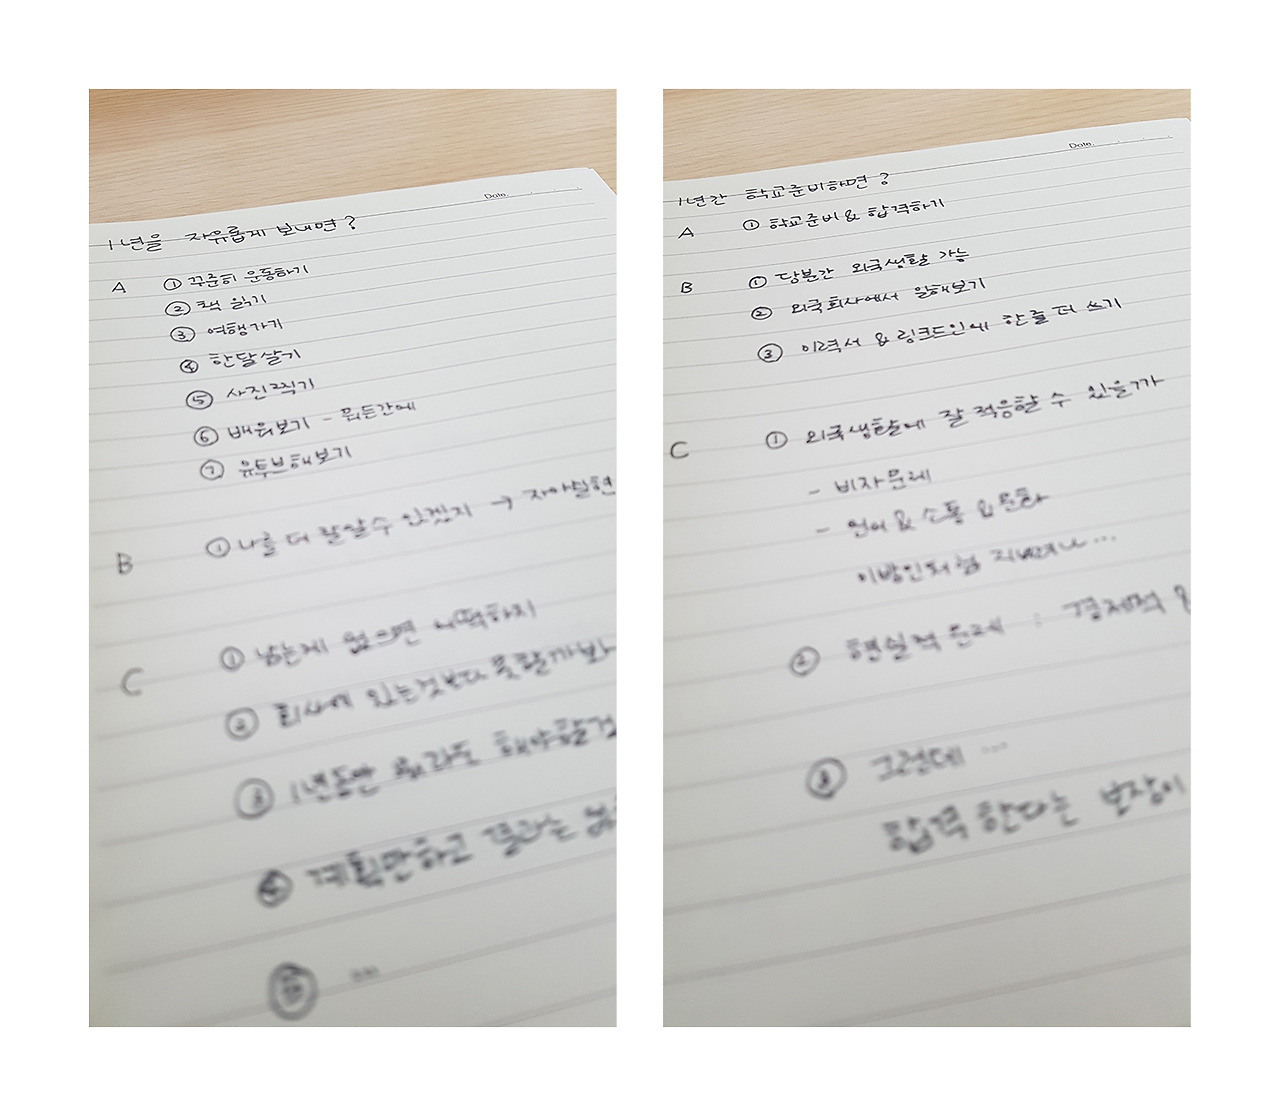 Date.
1년을 자유롭게 보내면?
A ① 꾸준히 운동하기
② 책 읽기
③ 여행가기
④ 한달살기
⑤ 사진찍기
⑥ 배워보기 - 뭐든간에
⑦ 유투브해보기
B ① 나를 더 잘알수 있겠지 → 자아실현
C ① 남는게 없으면 어떡하지
② 회사에 있는것보다 못할까봐
③ 1년동안 뭐라도 해야할것
④ 계획만하고 결과는
⑤ ...
Date.
1년간 학교준비하면?
A ① 학교준비 & 합격하기
B ① 당분간 외국생활 가능
② 외국회사에서 일해보기
③ 이력서 & 링크드인에 한줄 더 쓰기
C ① 외국생활에 잘 적응할 수 있을까
- 비자문제
- 언어 & 소통 & 문화
이방인처럼 지내려나...
② 현실적 문제 : 경제적 &
③ 그런데 ...
합격한다는 보장이